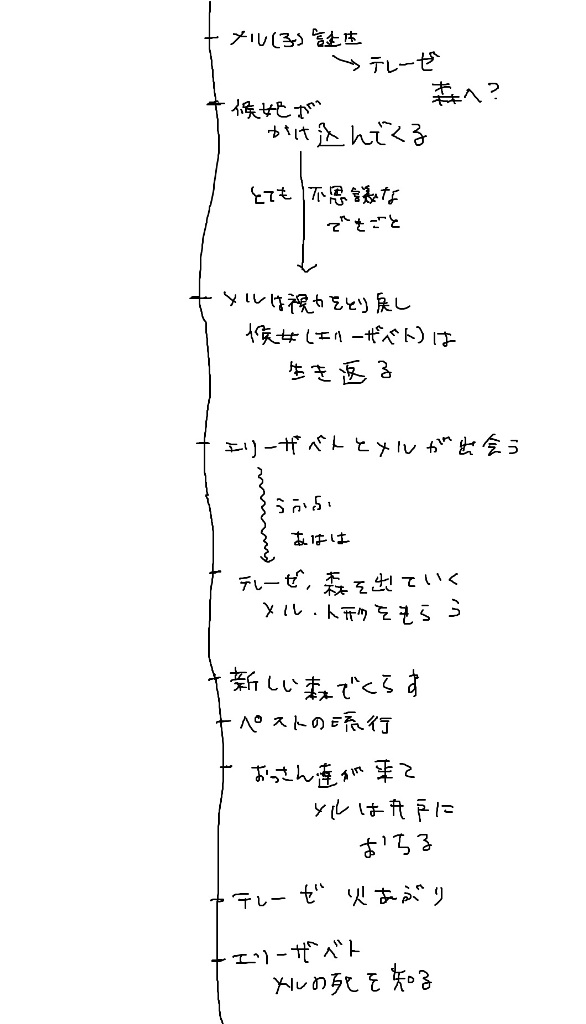 メル(子)誕生
→テレーゼ
森へ?
侯妃が
かけ込んでくる
とても 不思議な
できごと
メルは視力をとり戻し
侯女(エリーザベト)は
生き返る
エリーザベトとメルが出会う
うふふ
あはは
テレーゼ、森を出ていく
メル・人形をもらう
新しい森でくらす
ペストの流行
おっさん達が来て
メルは井戸に
おちる
テレーゼ 火あぶり
エリーザベト
メルの死を知る